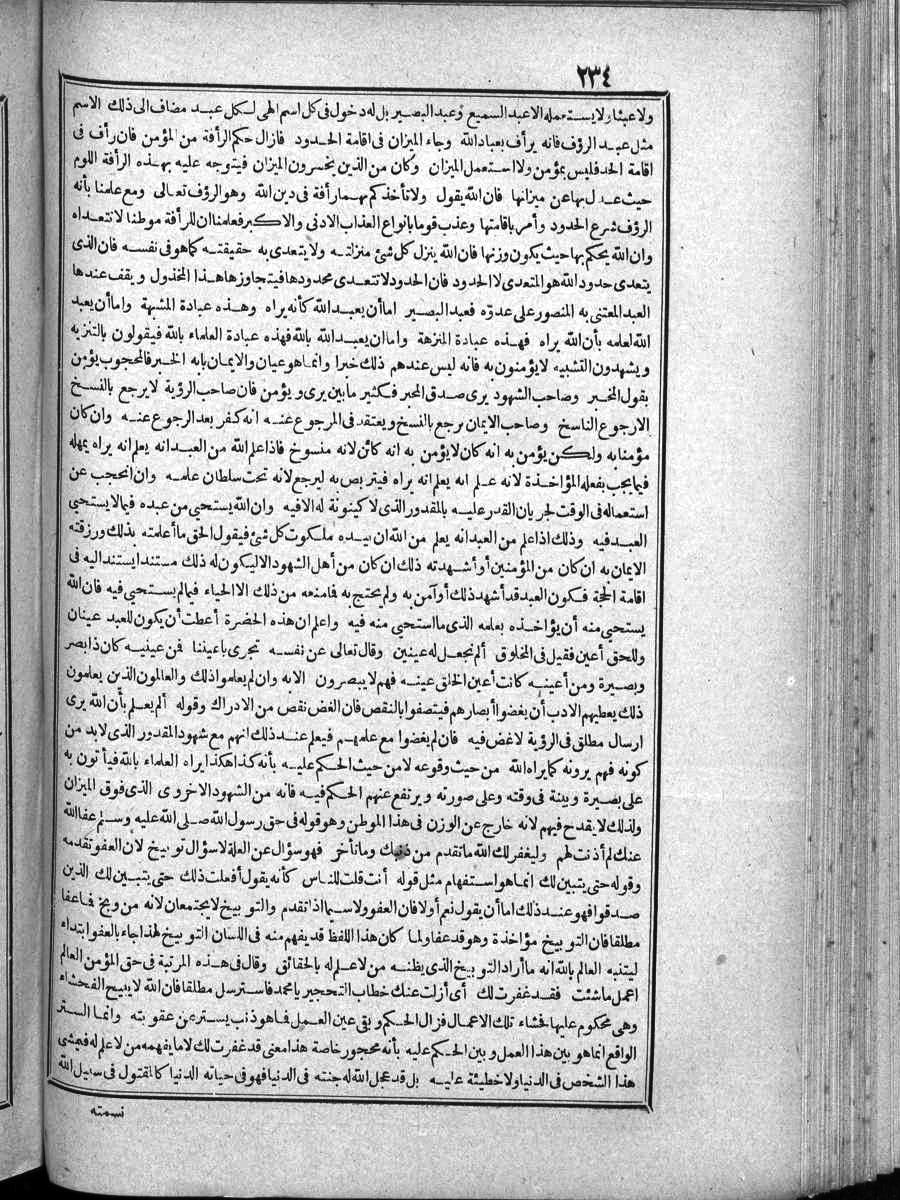 ٢٣٤
ولا عبثا ولا يستعمله الا عبد السميع وعبد البصير بل له دخول فى كل اسم الهى لكل عبد مضاف الى ذلك الاسم
مثل عبد الرؤف فانه يرأف بعباد الله وجاء الميزان فى اقامة الحدود فازال حكم الرأفة من المؤمن فان رأف فى
اقامة الحد فليس بمؤمن ولا استعمل الميزان وكان من الذين يخسرون الميزان فيتوجه عليه بهذه الرأفة اللوم
حيث عدل بها عن ميزانها فان الله يقول ولا تأخذكم بهما رأفة فى دين الله وهو الرؤف تعالى ومع علمنا بأنه
الرؤف شرع الحدود وأمر باقامتها وعذب قوما بانواع العذاب الادنى والاكبر فعلمنا ان للرأفة موطنا لا تتعداه
وان الله يحكم بها حيث يكون وزنها فان الله ينزل كل شئ منزلته ولا يتعدى به حقيقته كما هو فى نفسه فان الذى
يتعدى حدود الله هو المتعدى لا الحدود فان الحدود لا تتعدى محدودها فيتجاوزها هذا المخذول ويقف عندها
العبد المعتنى به المنصور على عدوّه فعبد البصير اما أن يعبد الله كأنه يراه وهذه عبادة المشبهة واما أن يعبد
الله لعلمه بأن الله يراه فهذه عبادة المنزهة واما ان يعبد الله بالله فهذه عبادة العلماء بالله فيقولون بالتنزيه
ويشهدون التشبيه لا يؤمنون به فانه ليس عندهم ذلك خبرا وانما هو عيان والايمان بابه الخبر فالمحجوب يؤمن
بقول المخبر وصاحب الشهود يرى صدق المخبر فكثير ما بين يرى ويؤمن فان صاحب الرؤية لا يرجع بالنسخ
الا رجوع الناسخ وصاحب الايمان يرجع بالنسخ ويعتقد فى المرجوع عنه انه كفر بعد الرجوع عنه وان كان
مؤمنا به ولكن يؤمن به انه كان لا يؤمن به انه كائن لانه منسوخ فاذا علم الله من العبد انه يعلم انه يراه يمهله
فيما يجب بفعله المؤاخذة لانه علم انه يعلم انه يراه فيتربص به ليرجع لانه تحت سلطان علمه وان انحجب عن
استعماله فى الوقت لجريان القدر عليه بالمقدور الذى لا كينونة له الا فيه وان الله يستحيى من عبده فيما لا يستحيى
العبد فيه وذلك اذا علم من العبد انه يعلم من الله ان بيده ملكوت كل شئ فيقول الحق ما أعلمته بذلك ورزقته
الايمان به ان كان من المؤمنين أو أشهدته ذلك ان كان من أهل الشهود الا ليكون له ذلك مستندا يستند اليه فى
اقامة الحجة فكون العبد قد أشهد ذلك أو آمن به ولم يحتج به فما منعه من ذلك الا الحياء فيما لم يستحيى فيه فان الله
يستحيى منه أن يؤاخذه بعلمه الذى ما استحيى منه فيه واعلم ان هذه الحضرة أعطت أن يكون للعبد عينان
وللحق أعين فقيل فى المخلوق ألم نجعل له عينين وقال تعالى عن نفسه تجرى باعيننا فمن عينيه كان ذا بصر
وبصيرة ومن أعينه كانت أعين الخلق عينه فهم لا يبصرون الا به وان لم يعلموا ذلك والعالمون الذين يعلمون
ذلك يعطيهم الادب أن يغضوا أبصارهم فيتصفوا بالنقص فان الغض نقص من الادراك وقوله ألم يعلم بأن الله يرى
ارسال مطلق فى الرؤية لا غض فيه فان لم يغضوا مع علمهم فيعلم عند ذلك انهم مع شهود المقدور الذى لا بد من
كونه فهم يرونه كما يراه الله من حيث وقوعه لا من حيث الحكم عليه بأنه كذا هكذا يراه العلماء بالله فيأتون به
على بصيرة وبينة فى وقته وعلى صورته ويرتفع عنهم الحكم فيه فانه من الشهود الاخروى الذى فوق الميزان
ولذلك لا يقدح فيهم لانه خارج عن الوزن فى هذا الموطن وهو قوله فى حق رسول الله صلى الله عليه وسلم عفا الله
عنك لم أذنت لهم وليغفر لك الله ما تقدم من ذنبك وما تأخر فهو سؤال عن العلة لا سؤال توبيخ لان العفو تقدمه
وقوله حتى يتبين لك انما هو استفهام مثل قوله أنت قلت للناس كأنه يقول أفعلت ذلك حتى يتبين لك الذين
صدقوا فهو عند ذلك اما أن يقول نعم أو لا فان العفو ولا سيما اذا تقدم والتوبيخ لا يجتمعان لانه من وبخ فما عفا
مطلقا فان التوبيخ مؤاخذة وهو قد عفا ولما كان هذا اللفظ قد يفهم منه فى اللسان التوبيخ لهذا جاء بالعفو ابتداء
ليتنبه العالم بالله انه ما أراد التوبيخ الذى يظنه من لا علم له بالحقائق وقال فى هذه المرتبة فى حق المؤمن العالم
اعمل ما شئت فقد غفرت لك أى أزلت عنك خطاب التحجير يا محمد فاسترسل مطلقا فان الله لا يبيح الفحشاء
وهى محكوم عليها فحشاء تلك الاعمال فزال الحكم وبقى عين العمل فما هو ذنب يستر عن عقوبته وانما الستر
الواقع انما هو بين هذا العمل وبين الحكم عليه بأنه محجور خاصة هذا معنى قد غفرت لك لا ما يفهمه من لا علم له فيمشى
هذا الشخص فى الدنيا ولا خطيئة عليه بل قد عجل الله له جنته فى الدنيا فهو فى حياته الدنيا كالمقتول فى سبيل الله
نسمته